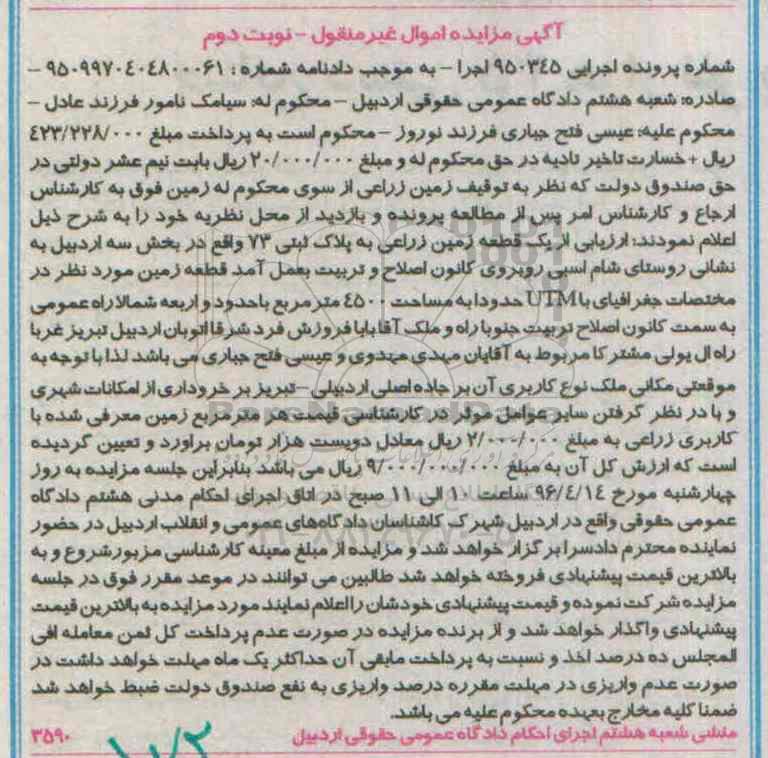 آگهی مزایده اموال غیر منقول - نوبت دوم
شماره پرونده اجرایی ۹۵۰۳۴۵ اجرا - به موجب دادنامه شماره: ۹۵۰۹۹۷۰۴۰۴۸۰۰۰۶۱ -
صادره: شعبه هشتم دادگاه عمومی حقوقی اردبیل - محکوم له: سیامک نامور فرزند عادل -
محکوم علیه: عیسی فتح جباری فرزند نوروز - محکوم است به پرداخت مبلغ ۴۲۳/۲۲۸/۰۰۰
ریال + خسارت تاخیر تادیه در حق محکوم له و مبلغ ۲۰/۰۰۰/۰۰۰ ریال بابت نیم عشر دولتی در
حق صندوق دولت که نظر به توقیف زمین زراعی از سوی محکوم له زمین فوق به کارشناس
ارجاع و کارشناس امر پس از مطالعه پرونده و بازدید از محل نظریه خود را به شرح ذیل
اعلام نمودند: ارزیابی از یک قطعه زمین زراعی به پلاک ثبتی ۷۳ واقع در بخش سه اردبیل به
نشانی روستای شام اسبی روبروی کانون اصلاح و تربیت بعمل آمد قطعه زمین مورد نظر در
مختصات جغرافیای با UTM حدودا به مساحت ۴۵۰۰ متر مربع با حدود و اربعه شمالا راه عمومی
به سمت کانون اصلاح تربیت جنوبا راه و ملک آقا بابا فروزش فرد شرقا اتوبان اردبیل تبریز غربا
راه ال یولی مشترکا مربوط به آقایان مهدی مهدوی و عیسی فتح جباری می باشد لذا با توجه به
موقعتی مکانی ملک نوع کاربری آن بر جاده اصلی اردبیلی - تبریز بر خروداری از امکانات شهری
و با در نظر گرفتن سایر عوامل موثر در کارشناسی قیمت هر متر مربع زمین معرفی شده با
کاربری زراعی به مبلغ ۲/۰۰۰/۰۰۰ ریال معادل دویست هزار تومان براورد و تعیین گردیده
است که ارزش کل آن به مبلغ ۹/۰۰۰/۰۰۰/۰۰۰ ریال می باشد بنابراین جلسه مزایده به روز
چهارشنبه مورخ ۹۶/۴/۱۴ ساعت ۱۰ الی ۱۱ صبح در اتاق اجرای احکام مدنی هشتم دادگاه
عمومی حقوقی واقع در اردبیل شهرک کاشناسان دادگاه‌های عمومی و انقلاب اردبیل در حضور
نماینده محترم دادسرا برگزار خواهد شد و مزایده از مبلغ معینه کارشناسی مزبور شروع و به
بالاترین قیمت پیشنهادی فروخته خواهد شد طالبین می توانند در موعد مقرر فوق در جلسه
مزایده شرکت نموده و قیمت پیشنهادی خودشان را اعلام نمایند مورد مزایده به بالاترین قیمت
پیشنهادی واگذار خواهد شد و از برنده مزایده در صورت عدم پرداخت کل ثمن معامله افی
المجلس ده درصد اخذ و نسبت به پرداخت مابقی آن حداکثر یک ماه مهلت خواهد داشت در
صورت عدم واریزی در مهلت مقرره درصد واریزی به نفع صندوق دولت ضبط خواهد شد
ضمنا کلیه مخارج بعهده محکوم علیه می باشد.
منشی شعبه هشتم اجرای احکام دادگاه عمومی حقوقی اردبیل ۳۵۹۰